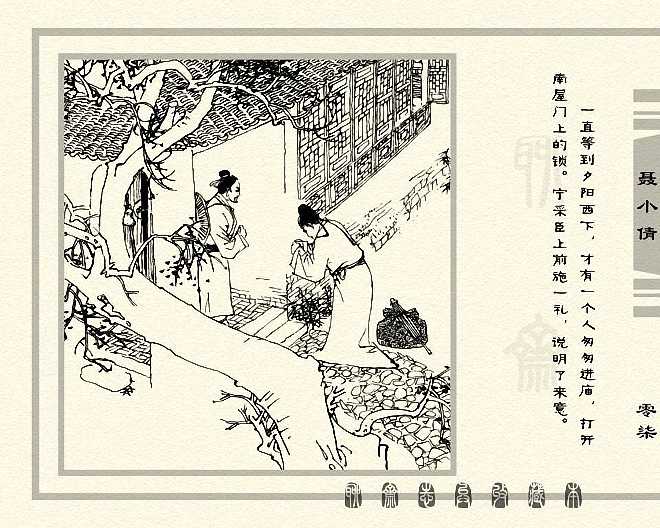 聂小倩
零柒
一直等到夕阳西下，才有一个人匆匆进庙，打开
南屋门上的锁。宁采臣上前施一礼，说明了来意。
聊斋志异收藏本